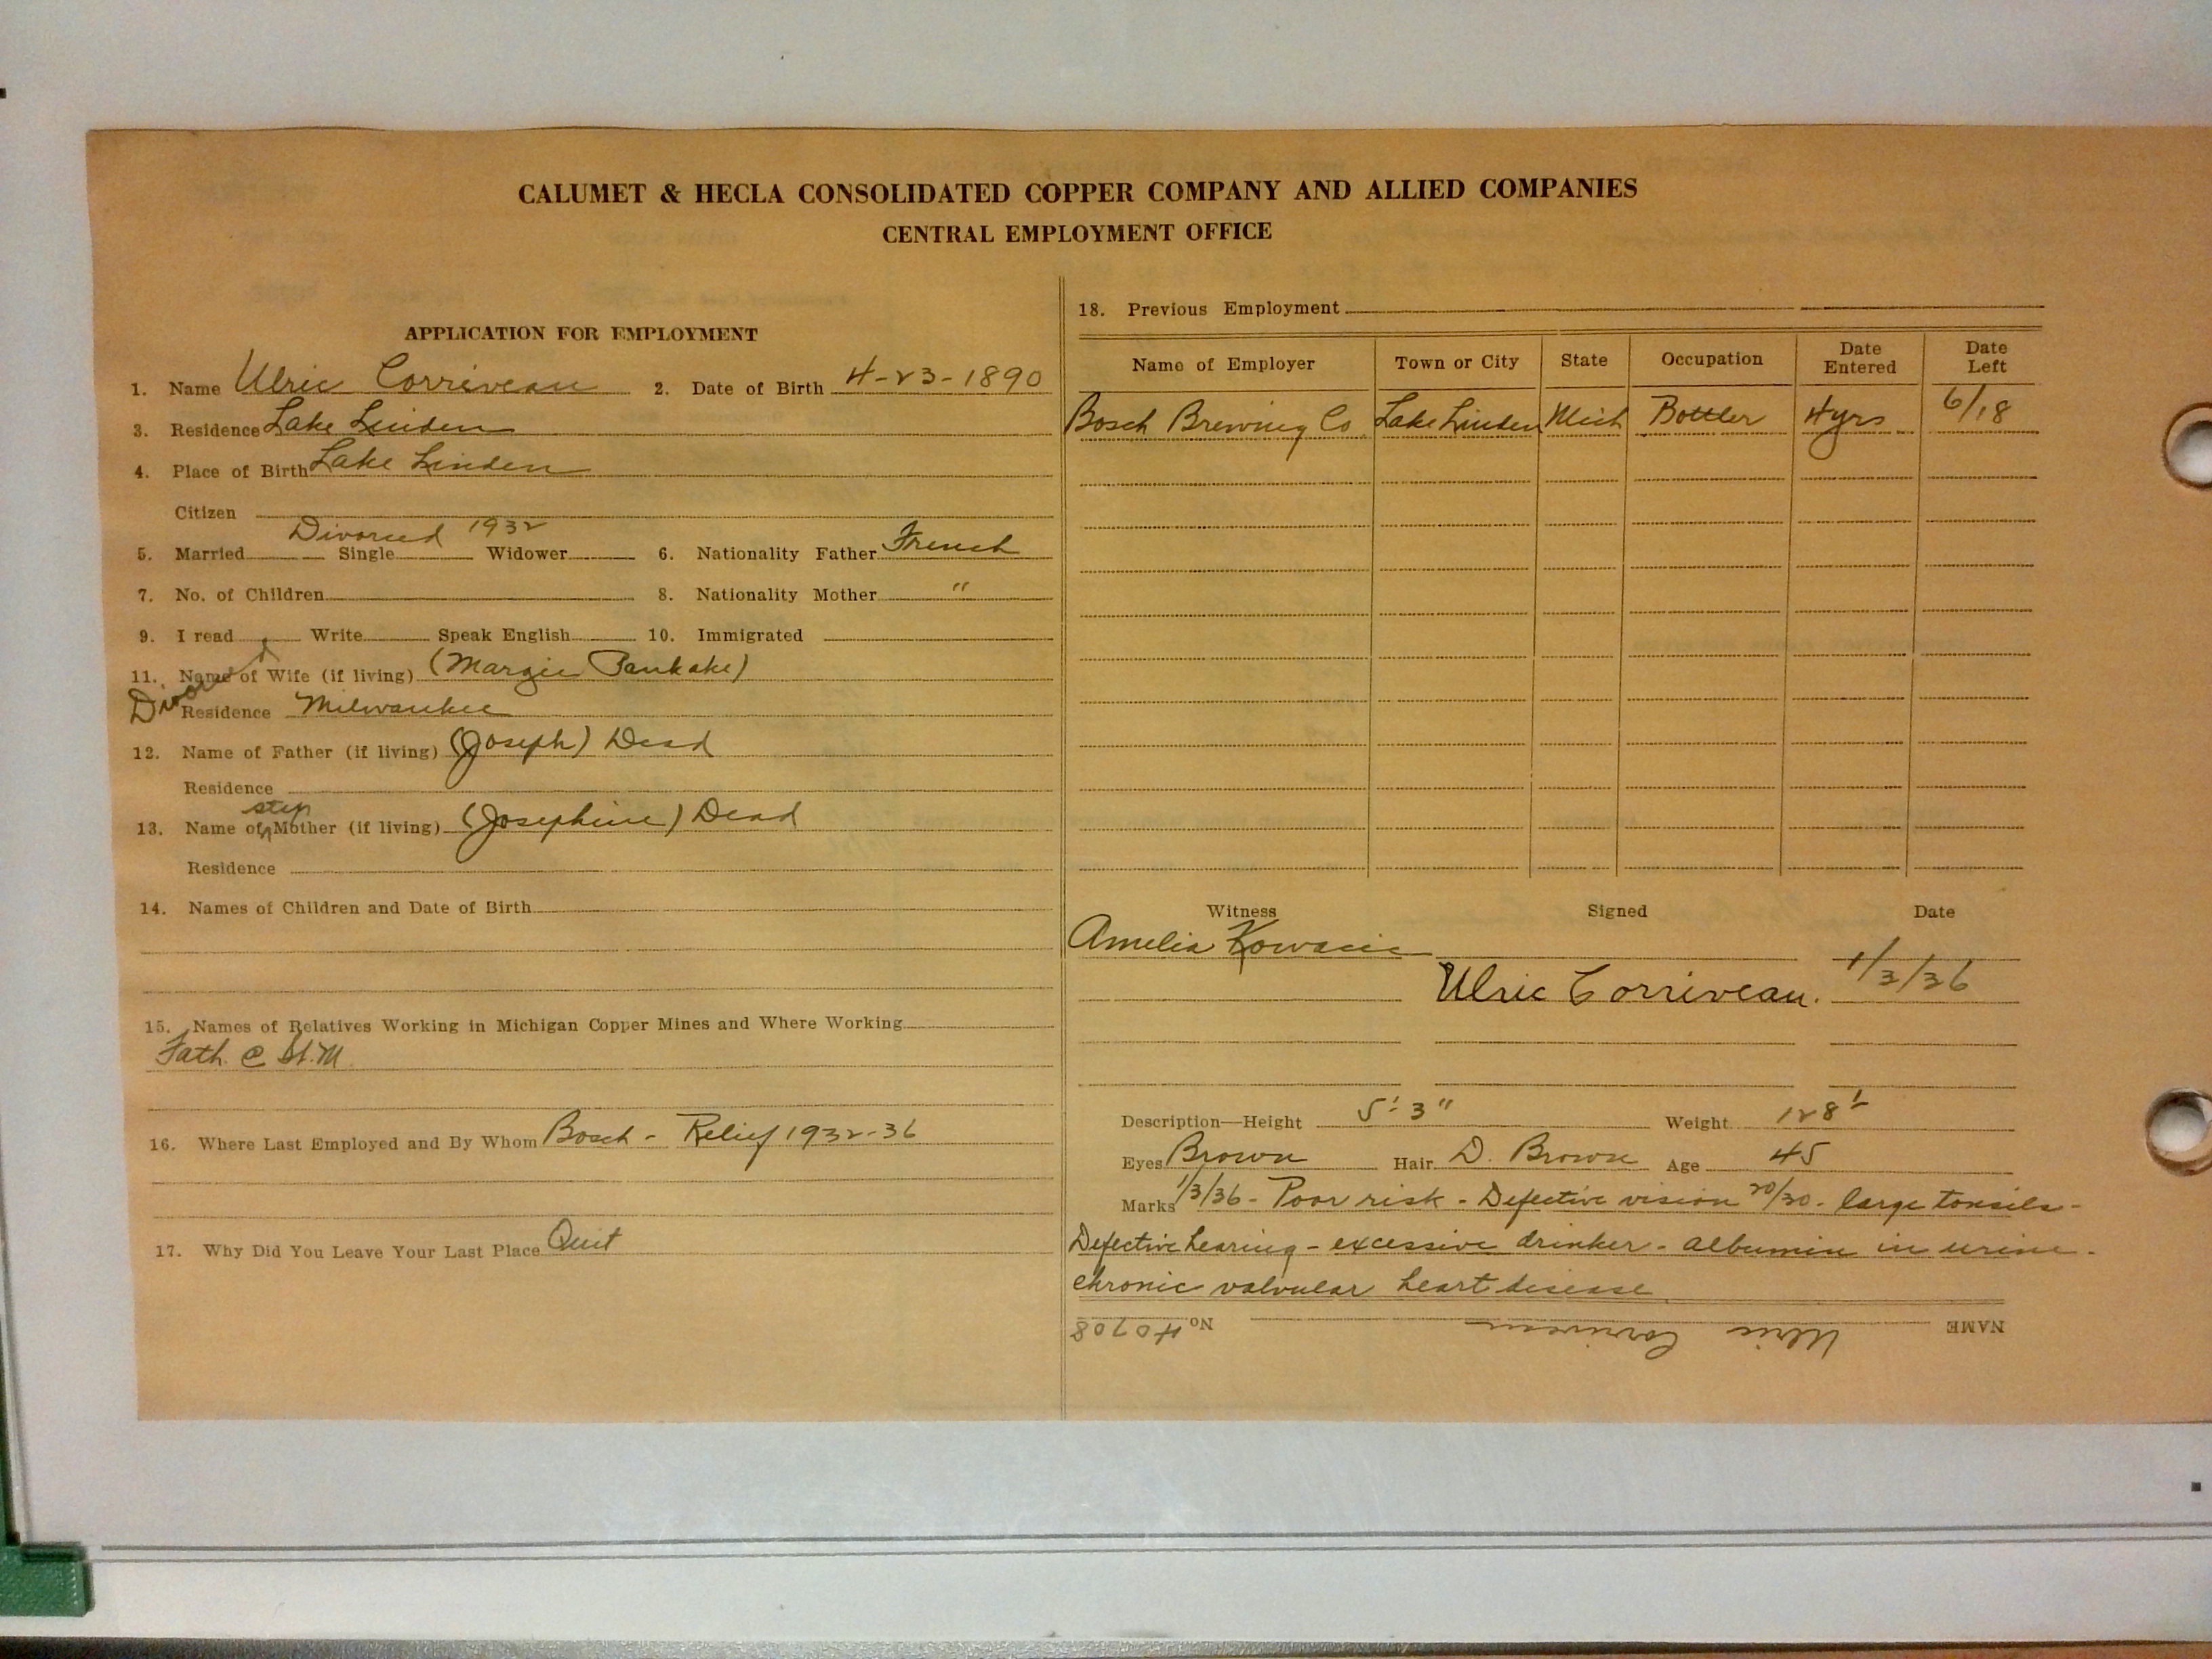 CALUMET & HECLA CONSOLIDATED COPPER COMPANY AND ALLIED COMPANIES
CENTRAL EMPLOYMENT OFFICE
APPLICATION FOR EMPLOYMENT
1. Name Ulric Corriveau 2. Date of Birth 4-23-1890
3. Residence Lake Linden
4. Place of Birth Lake Linden
Citizen
Divorced 1932
5. Married Single Widower 6. Nationality Father French
7. No. of Children 8. Nationality Mother "
9. I read Write Speak English 10. Immigrated
11. Name of Wife (if living) (Margie Pankake)
Divorced
Residence Milwaukee
12. Name of Father (if living) (Joseph) Dead
Residence
13. Name of step Mother (if living) (Josephine) Dead
Residence
14. Names of Children and Date of Birth
15. Names of Relatives Working in Michigan Copper Mines and Where Working
Fath. C
16. Where Last Employed and By Whom Bosch - Relief 1932-36
17. Why Did You Leave Your Last Place Quit
18. Previous Employment
Name of Employer Town or City State Occupation Date Entered Date Left
Bosch Brewing Co Lake Linden Mich Bottler 4 yrs 6/18
Witness Signed Date
Amelia
Ulric Corriveau. 1/3/36
Description—Height 5' 3" Weight 128½
Eyes Brown Hair D. Brown Age 45
Marks 1/3/36 - Poor risk - Defective vision 20/30 - large tonsils -
Defective hearing - excessive drinker - albumin in urine -
chronic valvular heart disease
NAME Ulric Corriveau No. 40708